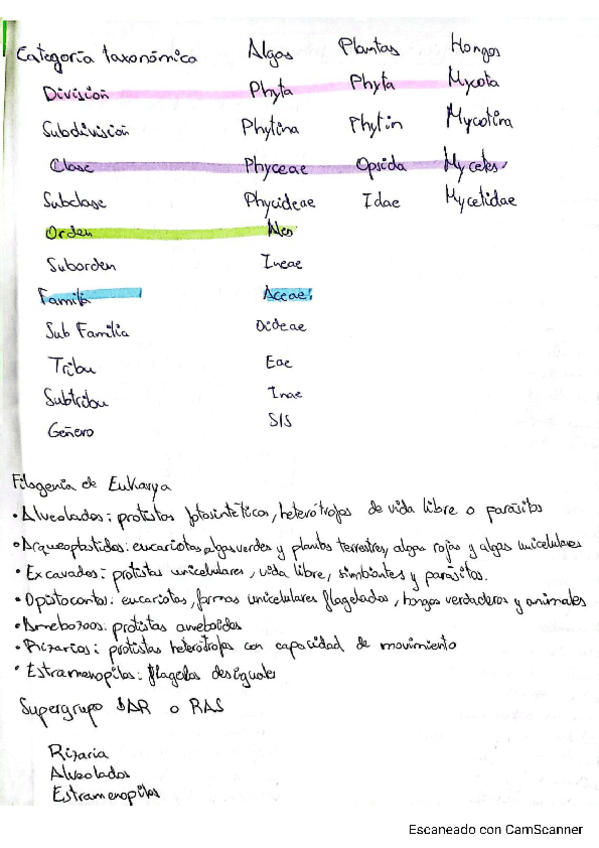 Categoría taxonómica Algas Plantas Hongos
División Phyta Phyta Mycota
Subdivisión Phytina Phytin Mycotina
Clase Phyceae Opsida Mycetes
Subclase Phycideae Idae Mycetidae
Orden Ales
Suborden Ineae
Familia Aceae
Sub Familia Oideae
Tribu Eae
Subtribu Inae
Género SIS
Filogenia de Eukarya
• Alveolados: protistas fotosintéticos, heterótrofos de vida libre o parásitos
• Arqueoplastidos: eucariotas, algas verdes y plantas terrestres, algas rojas y algas unicelulares
• Excavados: protistas unicelulares, vida libre, simbiontes y parásitos.
• Opistocontos: eucariotas, formas unicelulares flageladas, hongos verdaderos y animales
• Amebozoos: protistas ameboides
• Rizarios: protistas heterótrofos con capacidad de movimiento
• Estramenopilos: flagelos desiguales
Supergrupo SAR o RAS
Rizaria
Alveolados
Estramenopilos
Escaneado con CamScanner